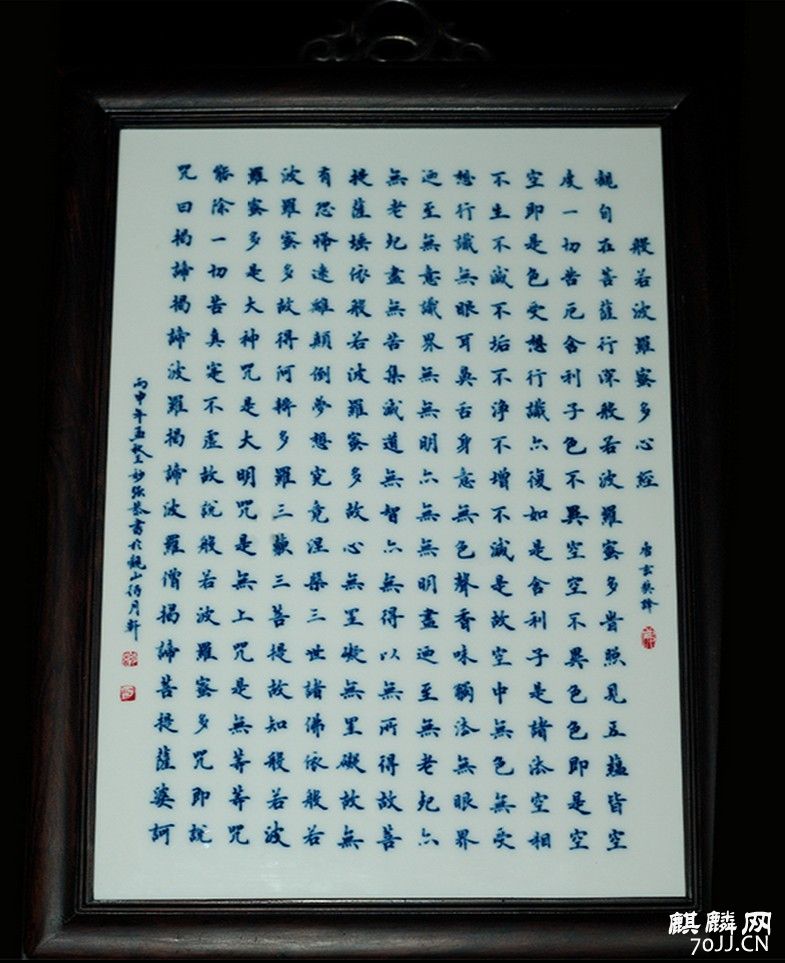 般若波羅蜜多心經 唐玄奘譯
觀自在菩薩行深般若波羅蜜多旹照見五蘊皆空
度一切苦厄舍利子色不異空空不異色色即是空
空即是色受想行識亦復如是舍利子是諸法空相
不生不滅不垢不淨不增不減是故空中無色無受
想行識無眼耳鼻舌身意無色聲香味觸法無眼界
迺至無意識界無無明亦無無明盡迺至無老死亦
無老死盡無苦集滅道無智亦無得以無所得故菩
提薩埵依般若波羅蜜多故心無罣礙無罣礙故無
有恐怖遠離顛倒夢想究竟涅槃三世諸佛依般若
波羅蜜多故得阿耨多羅三藐三菩提故知般若波
羅蜜多是大神咒是大明咒是無上咒是無等等咒
能除一切苦真實不虛故說般若波羅蜜多咒即說
咒曰揭諦揭諦波羅揭諦波羅僧揭諦菩提薩婆訶
丙申年孟秋王妙強恭書於觀山得月軒
麒麟网
70JJ.CN